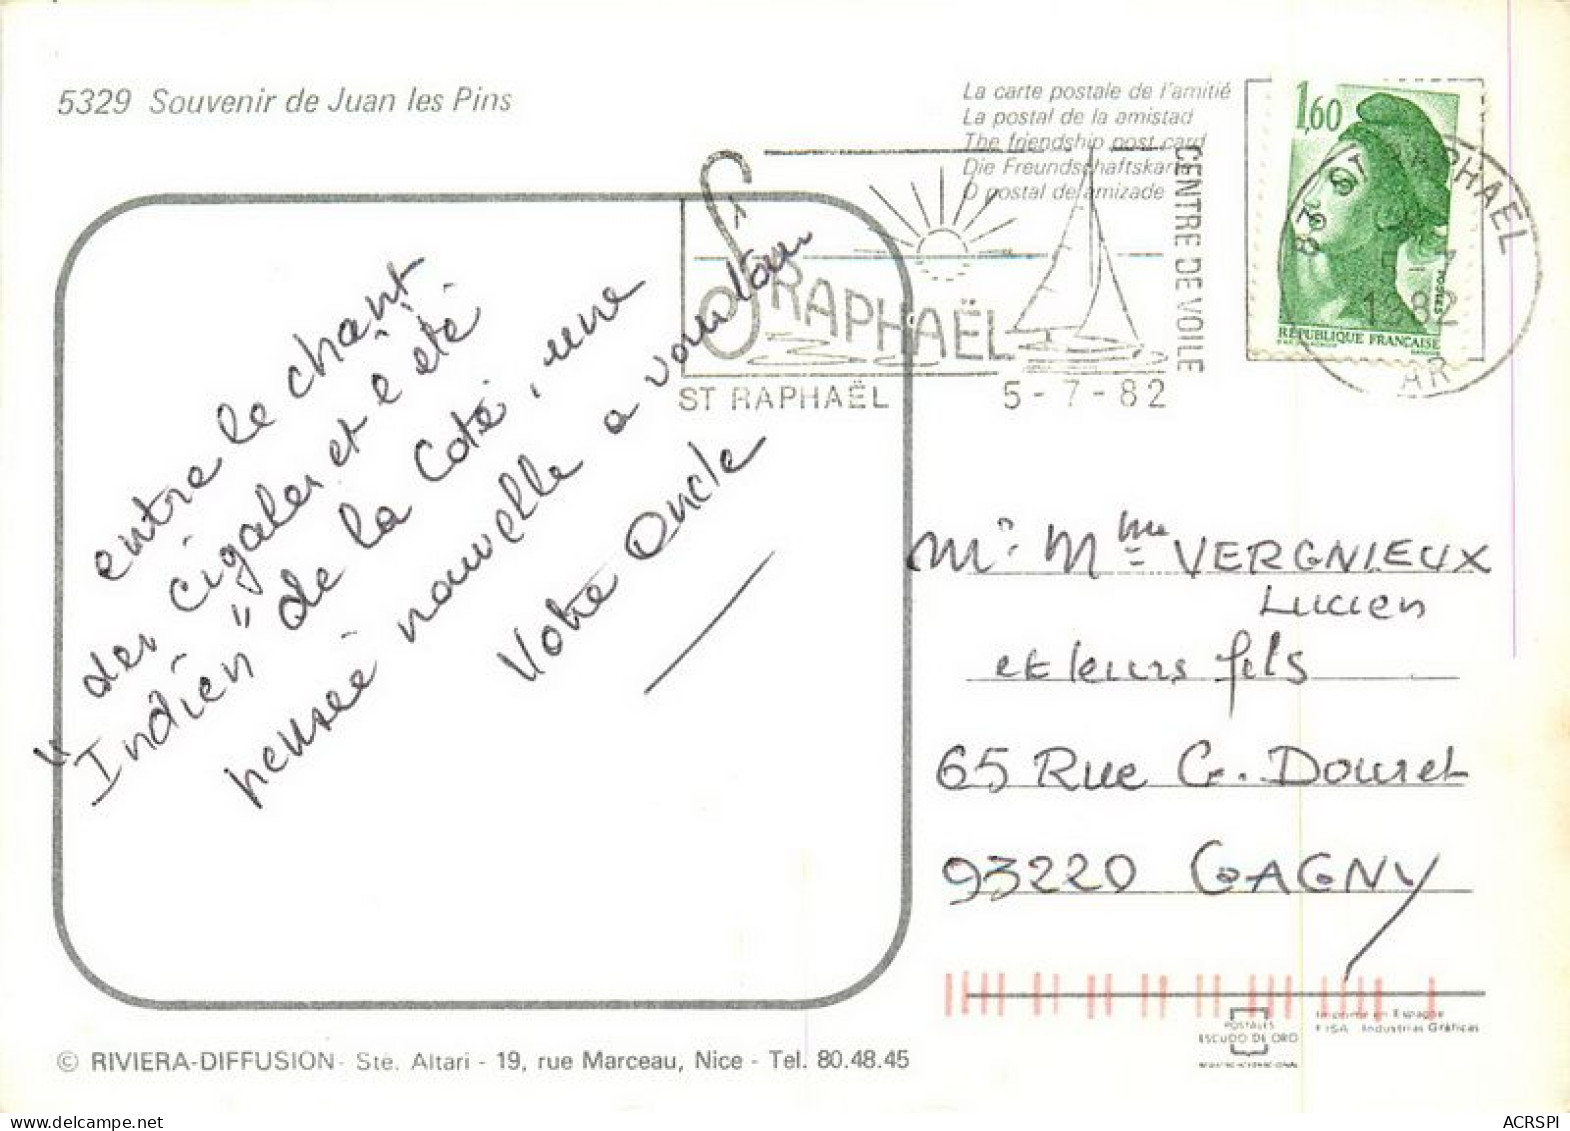 5329 Souvenir de Juan les Pins
La carte postale de l'amitié
La postal de la amistad
The friendship post card
Die Freundschaftskarte
O postal de amizade
1,60
POSTES
RÉPUBLIQUE FRANÇAISE
ST RAPHAEL
5-7
1982
VAR
ST RAPHAËL
CENTRE DE VOILE
ST RAPHAËL 5-7-82
entre le chant
des cigales et l'eté
"Indien" de la Coté, une
pensée nouvelle a vous tous
Votre Oncle
Mr Mme VERGNIEUX
Lucien
et leurs fils
65 Rue G. Douret
93220 GAGNY
POSTALES
ESCUDO DE ORO
Imprimé en Espagne
FISA Industrias Gráficas
© RIVIERA-DIFFUSION - Sté. Altari - 19, rue Marceau, Nice - Tel. 80.48.45
ACRSPI